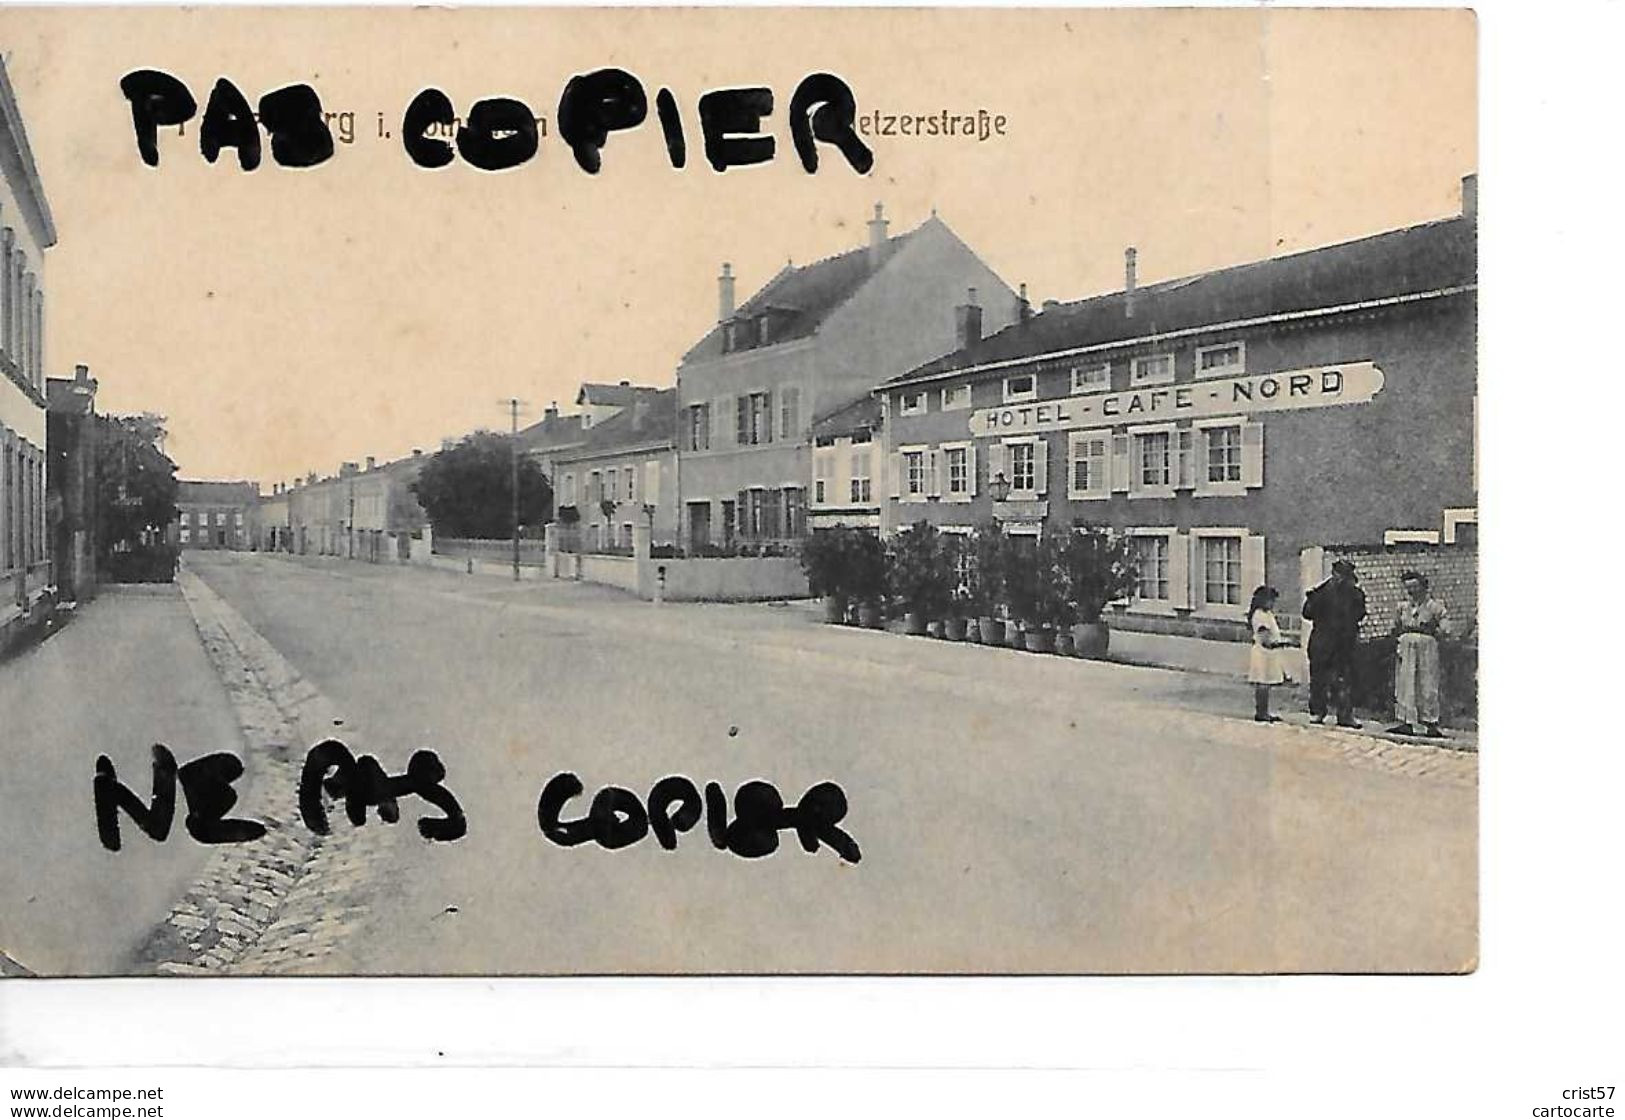 PAS COPIER
rg i.
etzerstraße
HOTEL - CAFE - NORD
NE PAS COPIER
www.delcampe.net
www.delcampe.net
crist57
cartocarte